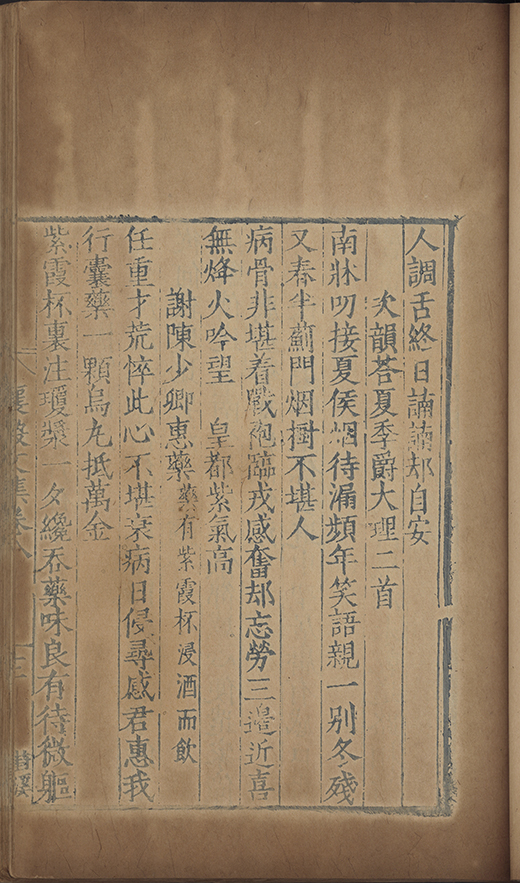 人調舌終日諵諵却自安
次韻荅夏季爵大理二首
南牀叨接夏侯烟待漏頻年笑語親一别冬殘
又春半薊門烟樹不堪人
病骨非堪着戰袍臨戎感奮却忘勞三邉近喜
無烽火吟望　皇都紫氣高
謝陳少卿惠藥藥有紫霞杯浸酒而飲
任重才荒悴此心不堪衰病日侵尋感君惠我
行囊藥一顆烏丸抵萬金
紫霞杯裏注瓊漿一夕纔吞藥味良有待微軀
襄毅文集卷八